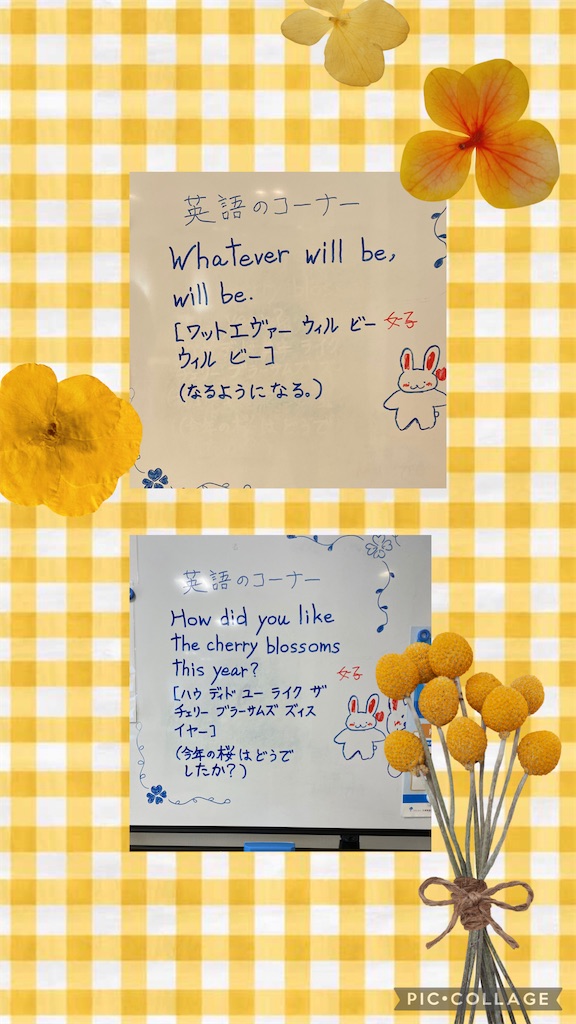 英語のコーナー
Whatever will be,
will be.
[ワットエヴァー ウィル ビー
ウィル ビー]
(なるようになる。)
女子
英語のコーナー
How did you like
the cherry blossoms
this year?
[ハウ ディド ユー ライク ザ
チェリー ブラーサムズ ズィス
イヤー]
(今年の桜はどうで
したか?)
女子
PIC•COLLAGE